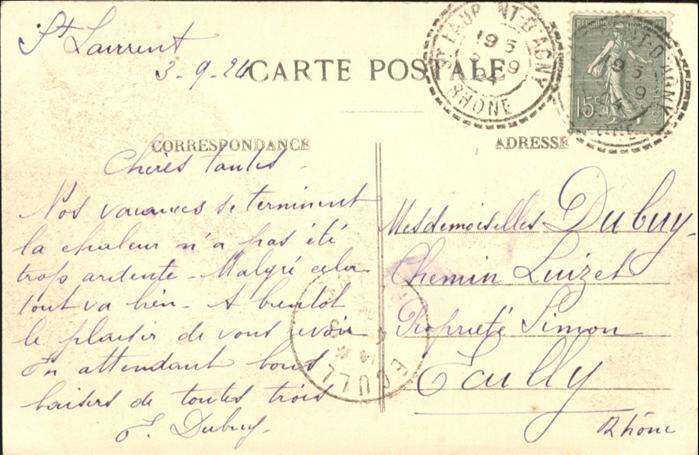 St Laurent
3-9-24
CARTE POSTALE
ST LAURENT-D'AGNY
19 5
RHÔNE
15c
CORRESPONDANCE
ADRESSE
Chères tantes
Nos vacances se terminent
la chaleur n'a pas été
trop ardente - Malgré cela
tout va bien. - A bientôt
le plaisir de vous revoir
En attendant bons
baisers de toutes trois
J. Dubuy-
Mesdemoiselles Dubuy-
Chemin Luizet
Propriété Simon
Ecully
Rhône
ECULLY